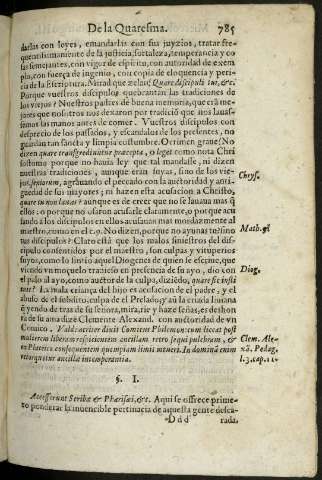 De la Quaresma. 785
darlas con leyes, emendarlas con sus juyzios, tratar fre-
quentissimamente de la justicia, fortaleza, temperancia y co
sas semejantes, con vigor de espiritu, con autoridad de exem
plo, con fuerça de ingenio, con copia de eloquencia y peri-
cia de la Escriptura. Mirad que zelan: Quare discipuli tui, &c.
Porque vuestros discipulos quebrantan las tradiciones de
los viejos? Nuestros padres de buena memoria, que erã me-
jores que nosotros nos dexaron por tradició que nos lauas-
simos las manos antes de comer. Vuestros discipulos con
desprecio de los passados, y escandalos de los presentes, no
guardan tan sancta y limpia costumbre. O crimen graue! No
dizen quare transgrediuntur præcepta, o leges como nota Chri
sostomo porque no hauia ley que tal mandasse, ni dizen
nuestras tradiciones, aunque eran suyas, sino de los vie-
jos, seniorum, agrauando el peccado con la auctoridad y anti-
guedad de sus mayores; ni hazen esta acusacion a Christo,
quare tu non lauas? aunque es de creer que no se lauaua mas q̃
ellos: o porque no osaron acusarle claramente, o porque acu
sando a los discipulos en ellos acusauan mas mordazmente al
maestro, como en el c. 9. No dizen, porque no ayunas tu? sino
tus discipulos? Claro està que los males siniestros del dis-
cipulo consentidos por el maestro, son culpas y vituperios
suyos, como lo sintio aquel Diogenes de quien se escriue, que
viendo vn moçuelo trauiesso en presencia de su ayo, dio con
el palo al ayo, como auctor de la culpa, diziẽdo, quare sic insti
tuis? La mala criança del hijo es acusacion de el padre, y el
abuso de el subdito, culpa de el Prelado; y aũ la criada liuiana
q̃ yendo de tras de su señora, mira, rie y haze señas, es deshon
ra de su ama dize Clemente Alexand. con auctoridad de vn
Comico. Valde arriter dicit Comicum Philemonem: liceat post
mulierem liberam respicientem ancillam retro sequi pulchram, &
ex Plateice consequentem quempiam limis intueri. In dominã enim
resurgitur ancillæ intemperantia.
Chrys.
Math. 9.
Diog.
Clem. Ale-
xã. Pedag.
l. 3. cap. 11.
§. I.
Accesserunt Scribæ & Pharisæi, &c. Aqui se offrece prime-
ro ponderar la inuencible pertinacia de aquesta gente desca-
Ddd rada,